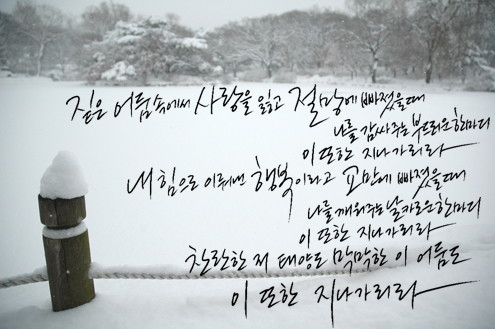 짙은 어둠속에서 사랑을 잃고 절망에 빠졌을때
나를 감싸주는 부드러운 한마디
이 또한 지나가리라
내 힘으로 이뤄낸 행복이라고 교만에 빠졌을때
나를 깨워주는 날카로운 한마디
이 또한 지나가리라
찬란한 저 태양도 막막한 이 어둠도
이 또한 지나가리라